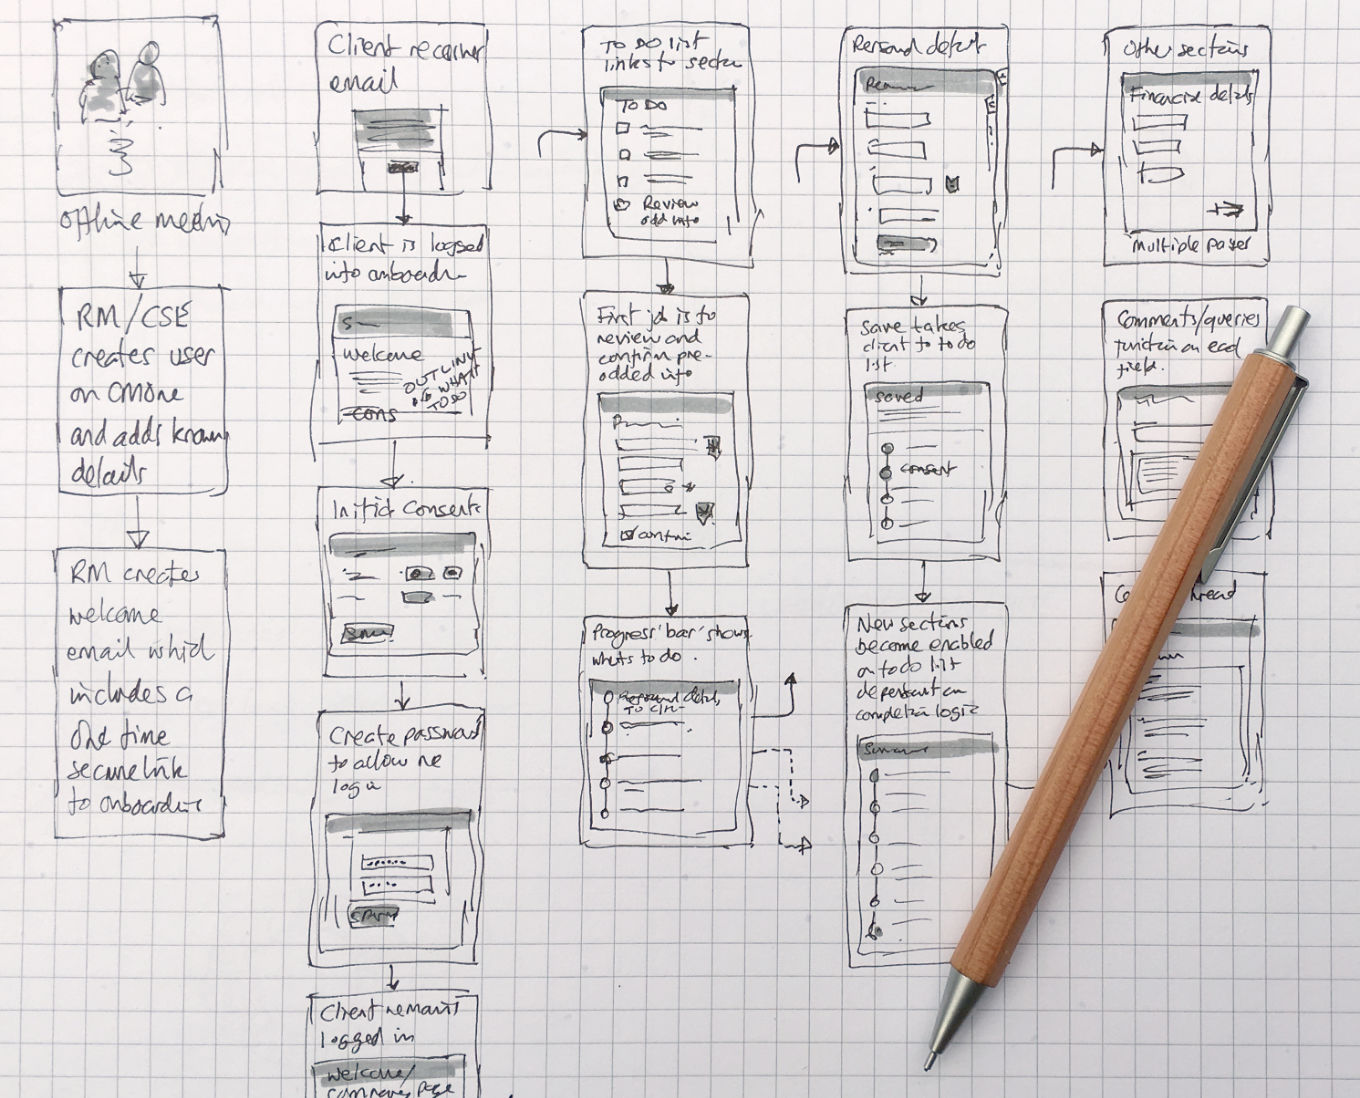 offline
RM/CSE
creates user
on
and adds known
details
RM creates
welcome
email which
includes a
one time
secure link
to
Client
email
Client is logged
into
Welcome
OUTLINE
OF WHAT
TO DO
Initial consents
Create password
to allow re
login
Client remains
logged in
welcome/
page
TO DO list
links to
TO DO
Review
add info
First job is to
review and
confirm pre-
added info
Progress 'bar' shows
whats to do.
Personal
Save takes
client to to do
list
saved
consent
New sections
become enabled
on to do list
dependant on
completion logic
Other sections
Financial details
multiple
Comments/queries
on each
field.